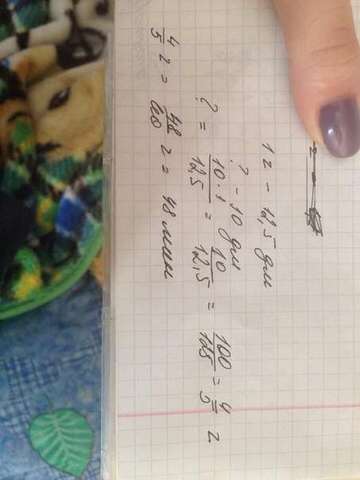 1 ч - 12,5 дм
? - 10 дм
? = 10·1/12,5 = 10/12,5 = 100/125 = 4/5 ч
4/5 ч = 48/60 ч = 48 мин